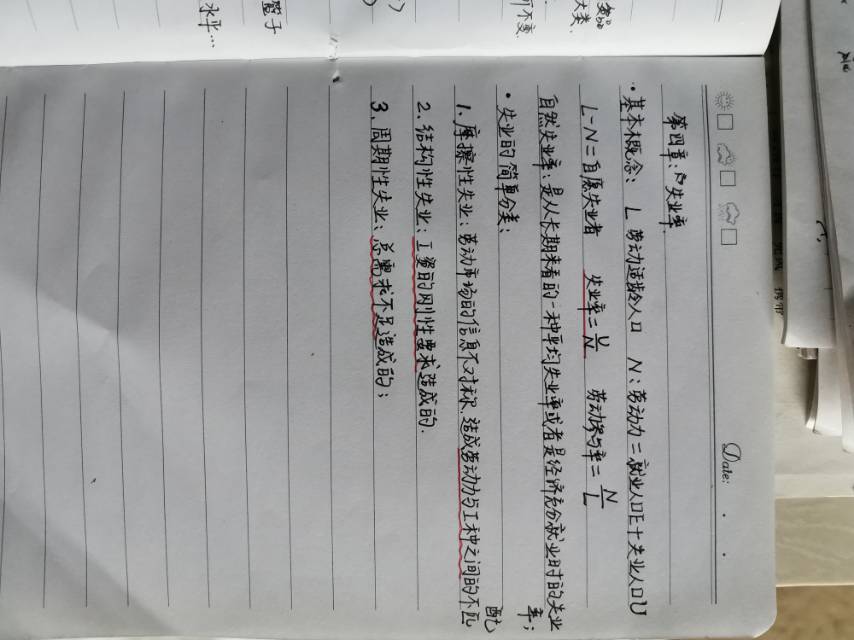 水平…
篮子
可不变.
大类.
Date:
第四章: 失业率.
· 基本概念: L 劳动适龄人口 N: 劳动力=就业人口E+失业人口U
L-N=自愿失业者 失业率=U/N 劳动参与率=N/L
自然失业率: 是从长期来看的一种平均失业率或者是经济充分就业时的失业率;
· 失业的简单分类:
1. 摩擦性失业: 劳动市场的信息不对称、造成劳动力与工种之间的不匹配
2. 结构性失业: 工资的刚性要求造成的.
3. 周期性失业: 总需求不足造成的;